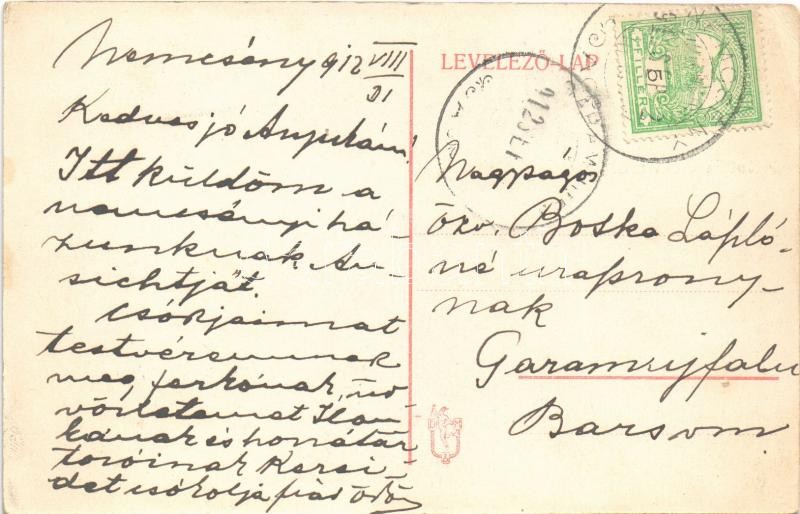 Nemcsény 912 VIII
31
Kedves jó Anyukám!
Itt küldöm a
nemcsényi há-
zunknak An-
sichtját.
Csókjaimat
testvéremnek
meg ferkónak, üd
vözletemet Ilon-
kának és honátar
tozóinak Kezei-
det csókolja fiad Ödön
LEVELEZŐ-LAP
FILLER
912 SEPT
Nagyságos
özv. Botka László-
né uraszony-
nak
Garamujfalu
Bars vm